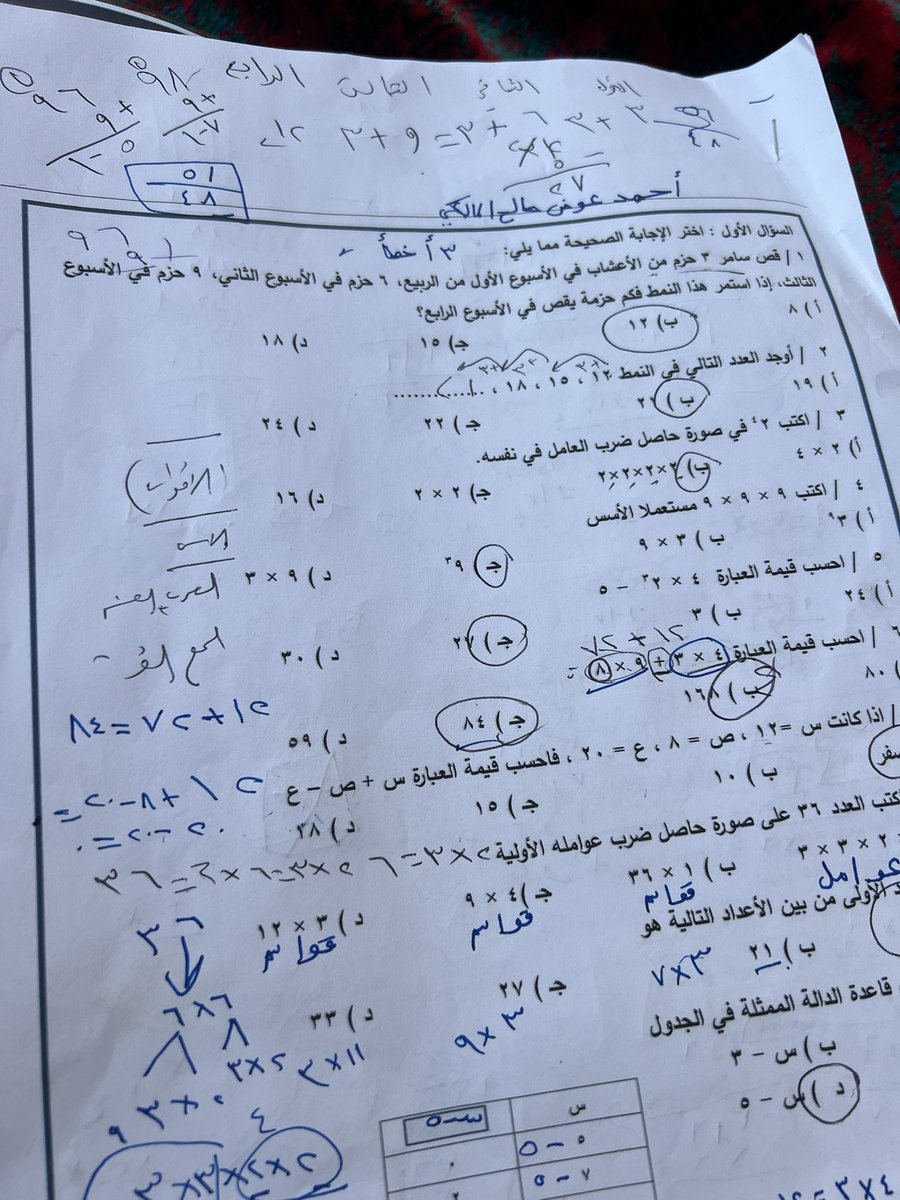 الأول الثاني الثالث الرابع
٣ + ٣ ٦ + ٣ = ٩ + ٣ ١٢
٥١
٤٨
أحمد عوض صالح المالكي
السؤال الأول : اختر الإجابة الصحيحة مما يلي: ٣ أخطأ
١ / قص سامر ٣ حزم من الأعشاب في الأسبوع الأول من الربيع، ٦ حزم في الأسبوع الثاني، ٩ حزم في الأسبوع
الثالث، إذا استمر هذا النمط فكم حزمة يقص في الأسبوع الرابع؟
أ ) ٨ ب ) ١٢ جـ ) ١٥ د ) ١٨
٢ / أوجد العدد التالي في النمط ١٢ ، ١٥ ، ١٨ ، ............
أ ) ١٩ ب ) ٢١ جـ ) ٢٢ د ) ٢٤
٣ / اكتب ٢⁴ في صورة حاصل ضرب العامل في نفسه.
أ ) ٢ × ٤ ب ) ٢×٢×٢×٢ جـ ) ٢ × ٢ د ) ١٦
٤ / اكتب ٩ × ٩ × ٩ مستعملا الأسس
أ ) ٣⁹ ب ) ٣ × ٩ جـ ) ٩³ د ) ٩ × ٣
الأقواس
الاسس
٥ / احسب قيمة العبارة ٤ × ٢³ − ٥
أ ) ٢٤ ب ) ٣ جـ ) ٢٧ د ) ٣٠
٧٢ + ١٢
٦ / احسب قيمة العبارة ٤ × ٣ + ٩ × ٨ =
) ٨٠ ب ) ١٦٨ جـ ) ٨٤ د ) ٥٩
١٢ + ٧٢ = ٨٤
/ اذا كانت س = ١٢ ، ص = ٨ ، ع = ٢٠ ، فاحسب قيمة العبارة س + ص − ع
١٢ + ٨ − ٢٠ =
٢٠ − ٢٠ = ٠
صفر ب ) ١٠ جـ ) ١٥ د ) ٢٨
كتب العدد ٣٦ على صورة حاصل ضرب عوامله الأولية
٢ × ٣ × ٣ ب ) ١ × ٣٦ جـ ) ٤ × ٩ د ) ٣ × ١٢
عوامل قواسم قواسم قواسم
الأولى من بين الأعداد التالية هو
ب ) ٢١ جـ ) ٢٧ د ) ٣٣
٧ × ٣ ٩ × ٣ ٣ × ١١
٣٦
٦ × ٦
قاعدة الدالة الممثلة في الجدول
ب ) س − ٣
د ) س − ٥
س س − ٥
٥ − ٥ ٠
٧ − ٥ ٢
٣ × ٣ × ٢ × ٢